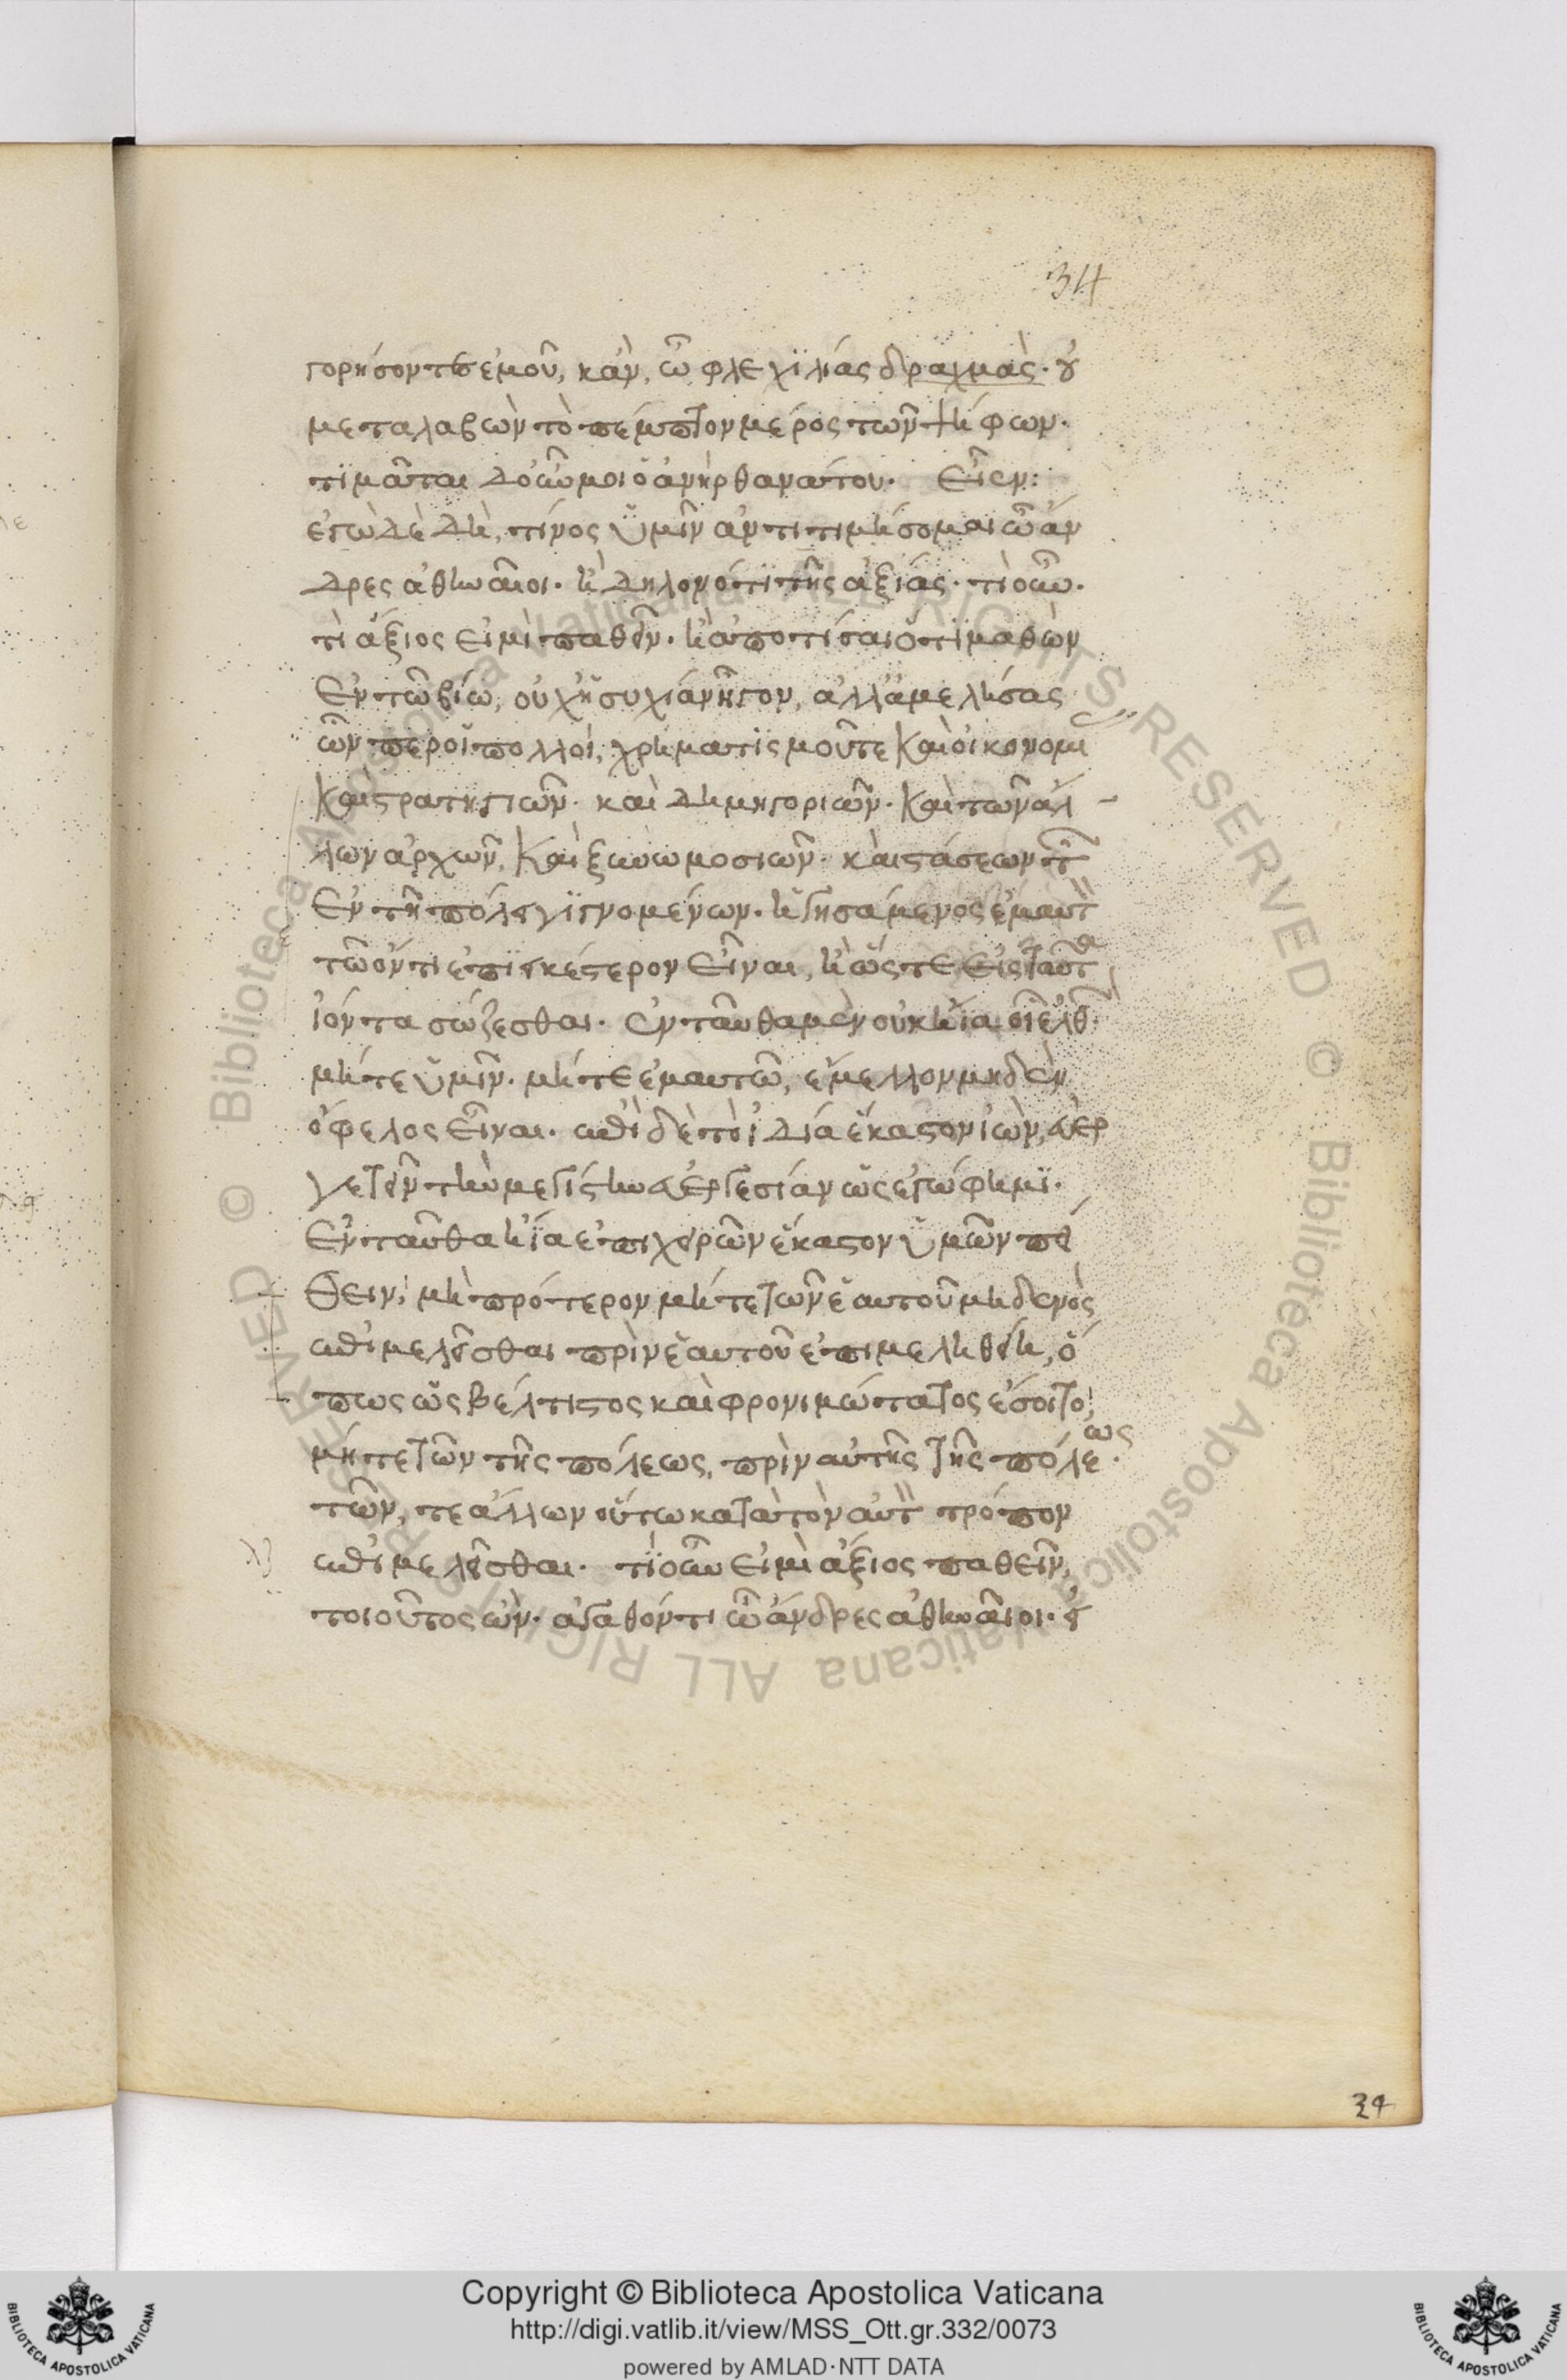 34
γορήσοντες ἐμοῦ, κἂν, ὦφλε χιλίας δραχμάς. οὐ
μεταλαβὼν τὸ πέμπτον μέρος τῶν ψήφων.
τιμᾶται δ' οὖν μοι ὁ ἀνὴρ θανάτου. εἶεν:
ἐγὼ δὲ δὴ, τίνος ὑμῖν ἀντιτιμήσομαι ὦ ἄν
δρες ἀθηναῖοι. ἢ δηλονότι τῆς ἀξίας. τί οὖν.
τί ἄξιος εἰμὶ παθεῖν. ἢ ἀποτίσαι ὅτι μαθὼν
ἐν τῷ βίῳ, οὐχ ἡσυχίαν ἦγον, ἀλλ' ἀμελήσας
ὧνπερ οἱ πολλοί, χρηματισμοῦ τε καὶ οἰκονομί
καὶ στρατηγιῶν. καὶ δημηγοριῶν. καὶ τῶν ἀλ
λων ἀρχῶν, καὶ ξυνωμοσιῶν. καὶ στάσεων τῶν
ἐν τῇ πόλει γιγνομένων. ἡγησάμενος ἐμαυτὸν
τῷ ὄντι ἐπιεικέστερον εἶναι, ἢ ὥστε εἰς ταῦτα
ἰόντα σώζεσθαι. ἐνταῦθα μὲν οὐκ ἦα οἷ ἐλθ.
μήτε ὑμῖν. μήτε ἐμαυτῷ, ἔμελλον μηδὲν
ὄφελος εἶναι. ἐπὶ δὲ τὸ ἰδίᾳ ἕκαστον ἰὼν, εὐερ
γετεῖν τὴν μεγίστην εὐεργεσίαν ὡς ἐγώ φημι.
ἐνταῦθα ἦα ἐπιχειρῶν ἕκαστον ὑμῶν πεί
θειν, μὴ πρότερον μήτε τῶν ἑαυτοῦ μηδενὸς
ἐπιμελεῖσθαι πρὶν ἑαυτοῦ ἐπιμεληθείη, ὅ
πως ὡς βέλτιστος καὶ φρονιμώτατος ἔσοιτο,
μήτε τῶν τῆς πόλεως, πρὶν αὐτῆς τῆς πόλεως.
τῶν, τε ἄλλων οὕτω κατὰ τὸν αὐτὸν τρόπον
ἐπιμελεῖσθαι. τί οὖν εἰμὶ ἄξιος παθεῖν,
τοιοῦτος ὤν. ἀγαθόν τι ὦ ἄνδρες ἀθηναῖοι. εἰ
34
© Biblioteca Apostolica Vaticana ALL RIGHTS RESERVED
Copyright © Biblioteca Apostolica Vaticana
http://digi.vatlib.it/view/MSS_Ott.gr.332/0073
powered by AMLAD·NTT DATA
BIBLIOTECA APOSTOLICA VATICANA
BIBLIOTECA APOSTOLICA VATICANA